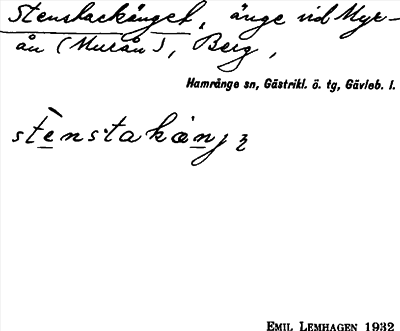 Stenstackänget, änge vid Myr-
ån (Murån), Berg,
Hamrånge sn, Gästrikl. ö. tg, Gävleb. l.
stè̲nstakän̲jʒ
EMIL LEMHAGEN 1932